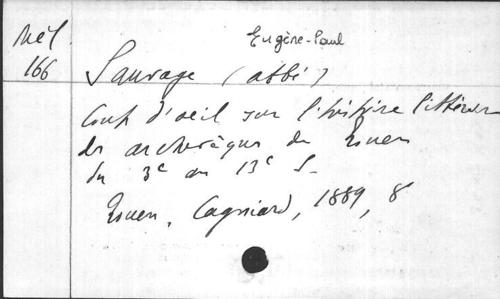 Mél.
166
Eugène-Paul
Sauvage (abbé)
Coup d'oeil sur l'histoire littéraire
des archevêques de Rouen
du 3e au 13e s.
Rouen, Cagniard, 1889, 8